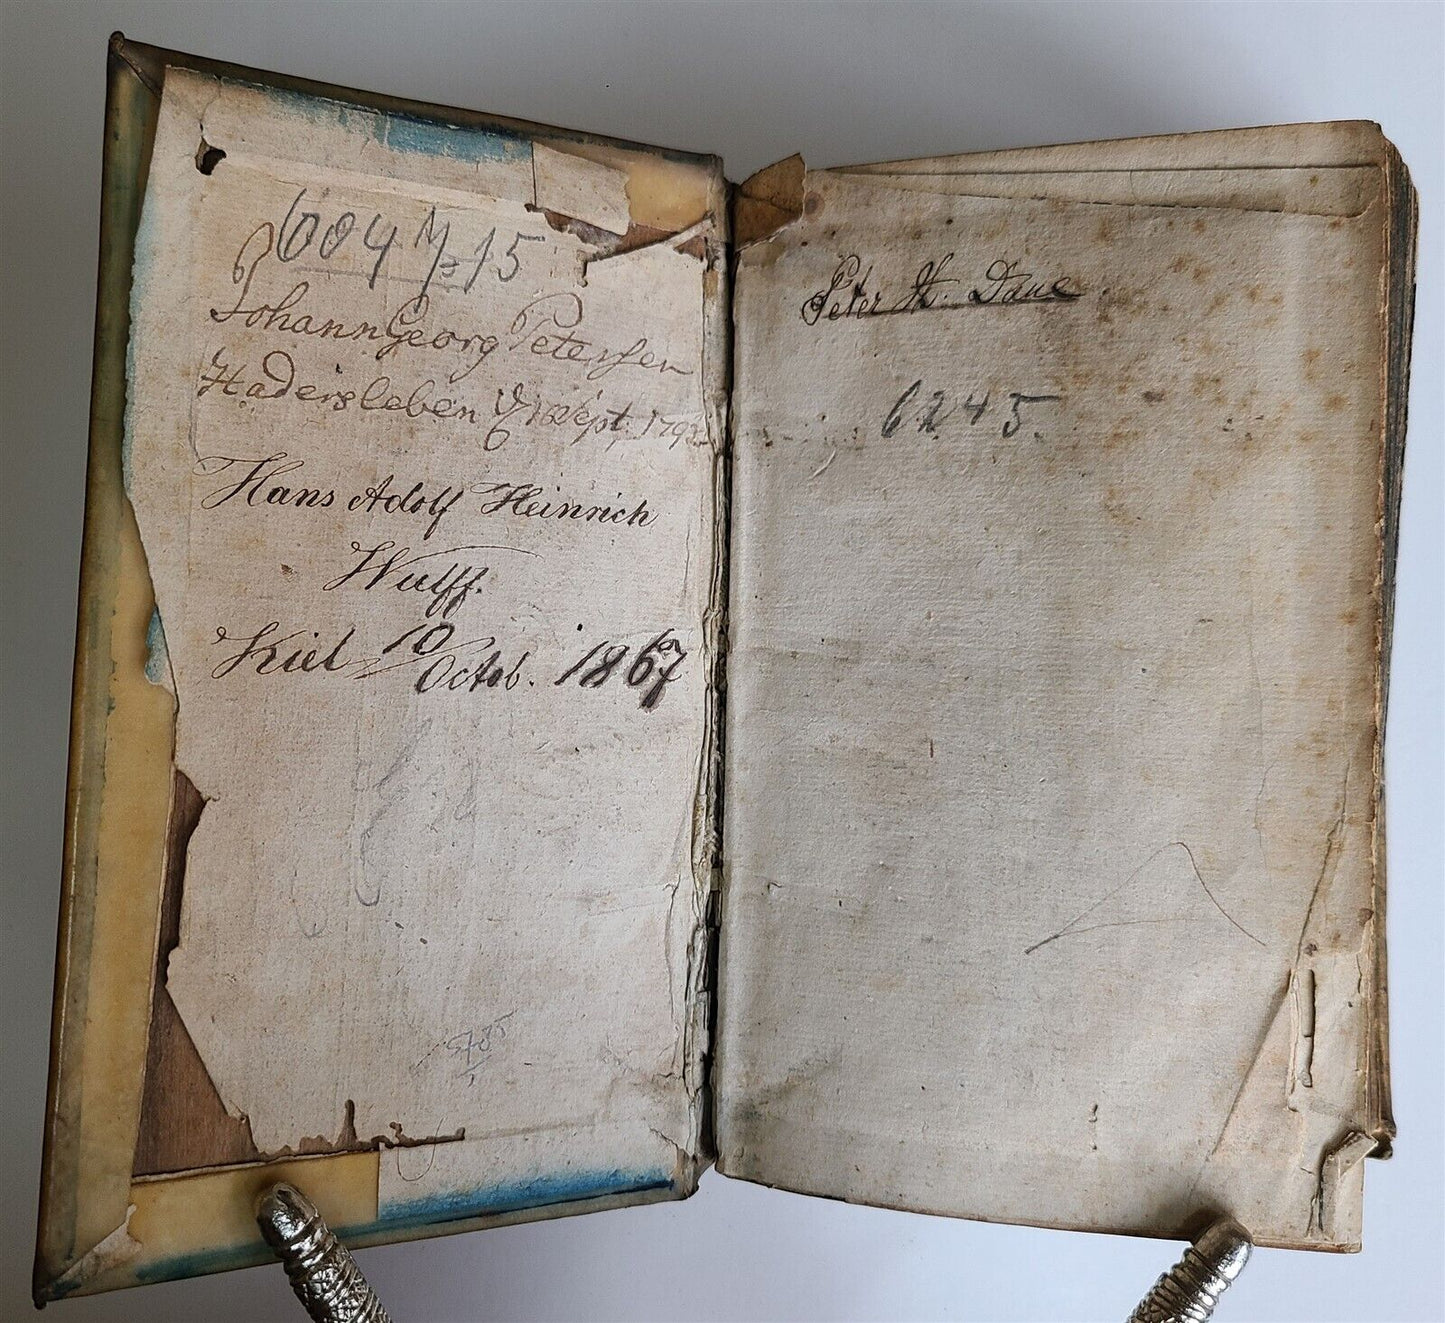 Johann Georg Petersen
Hadersleben Sept. 179
Hans Adolf Heinrich
Wulff.
Kiel 10 Octob. 1867
Peter H. Dane
6245.